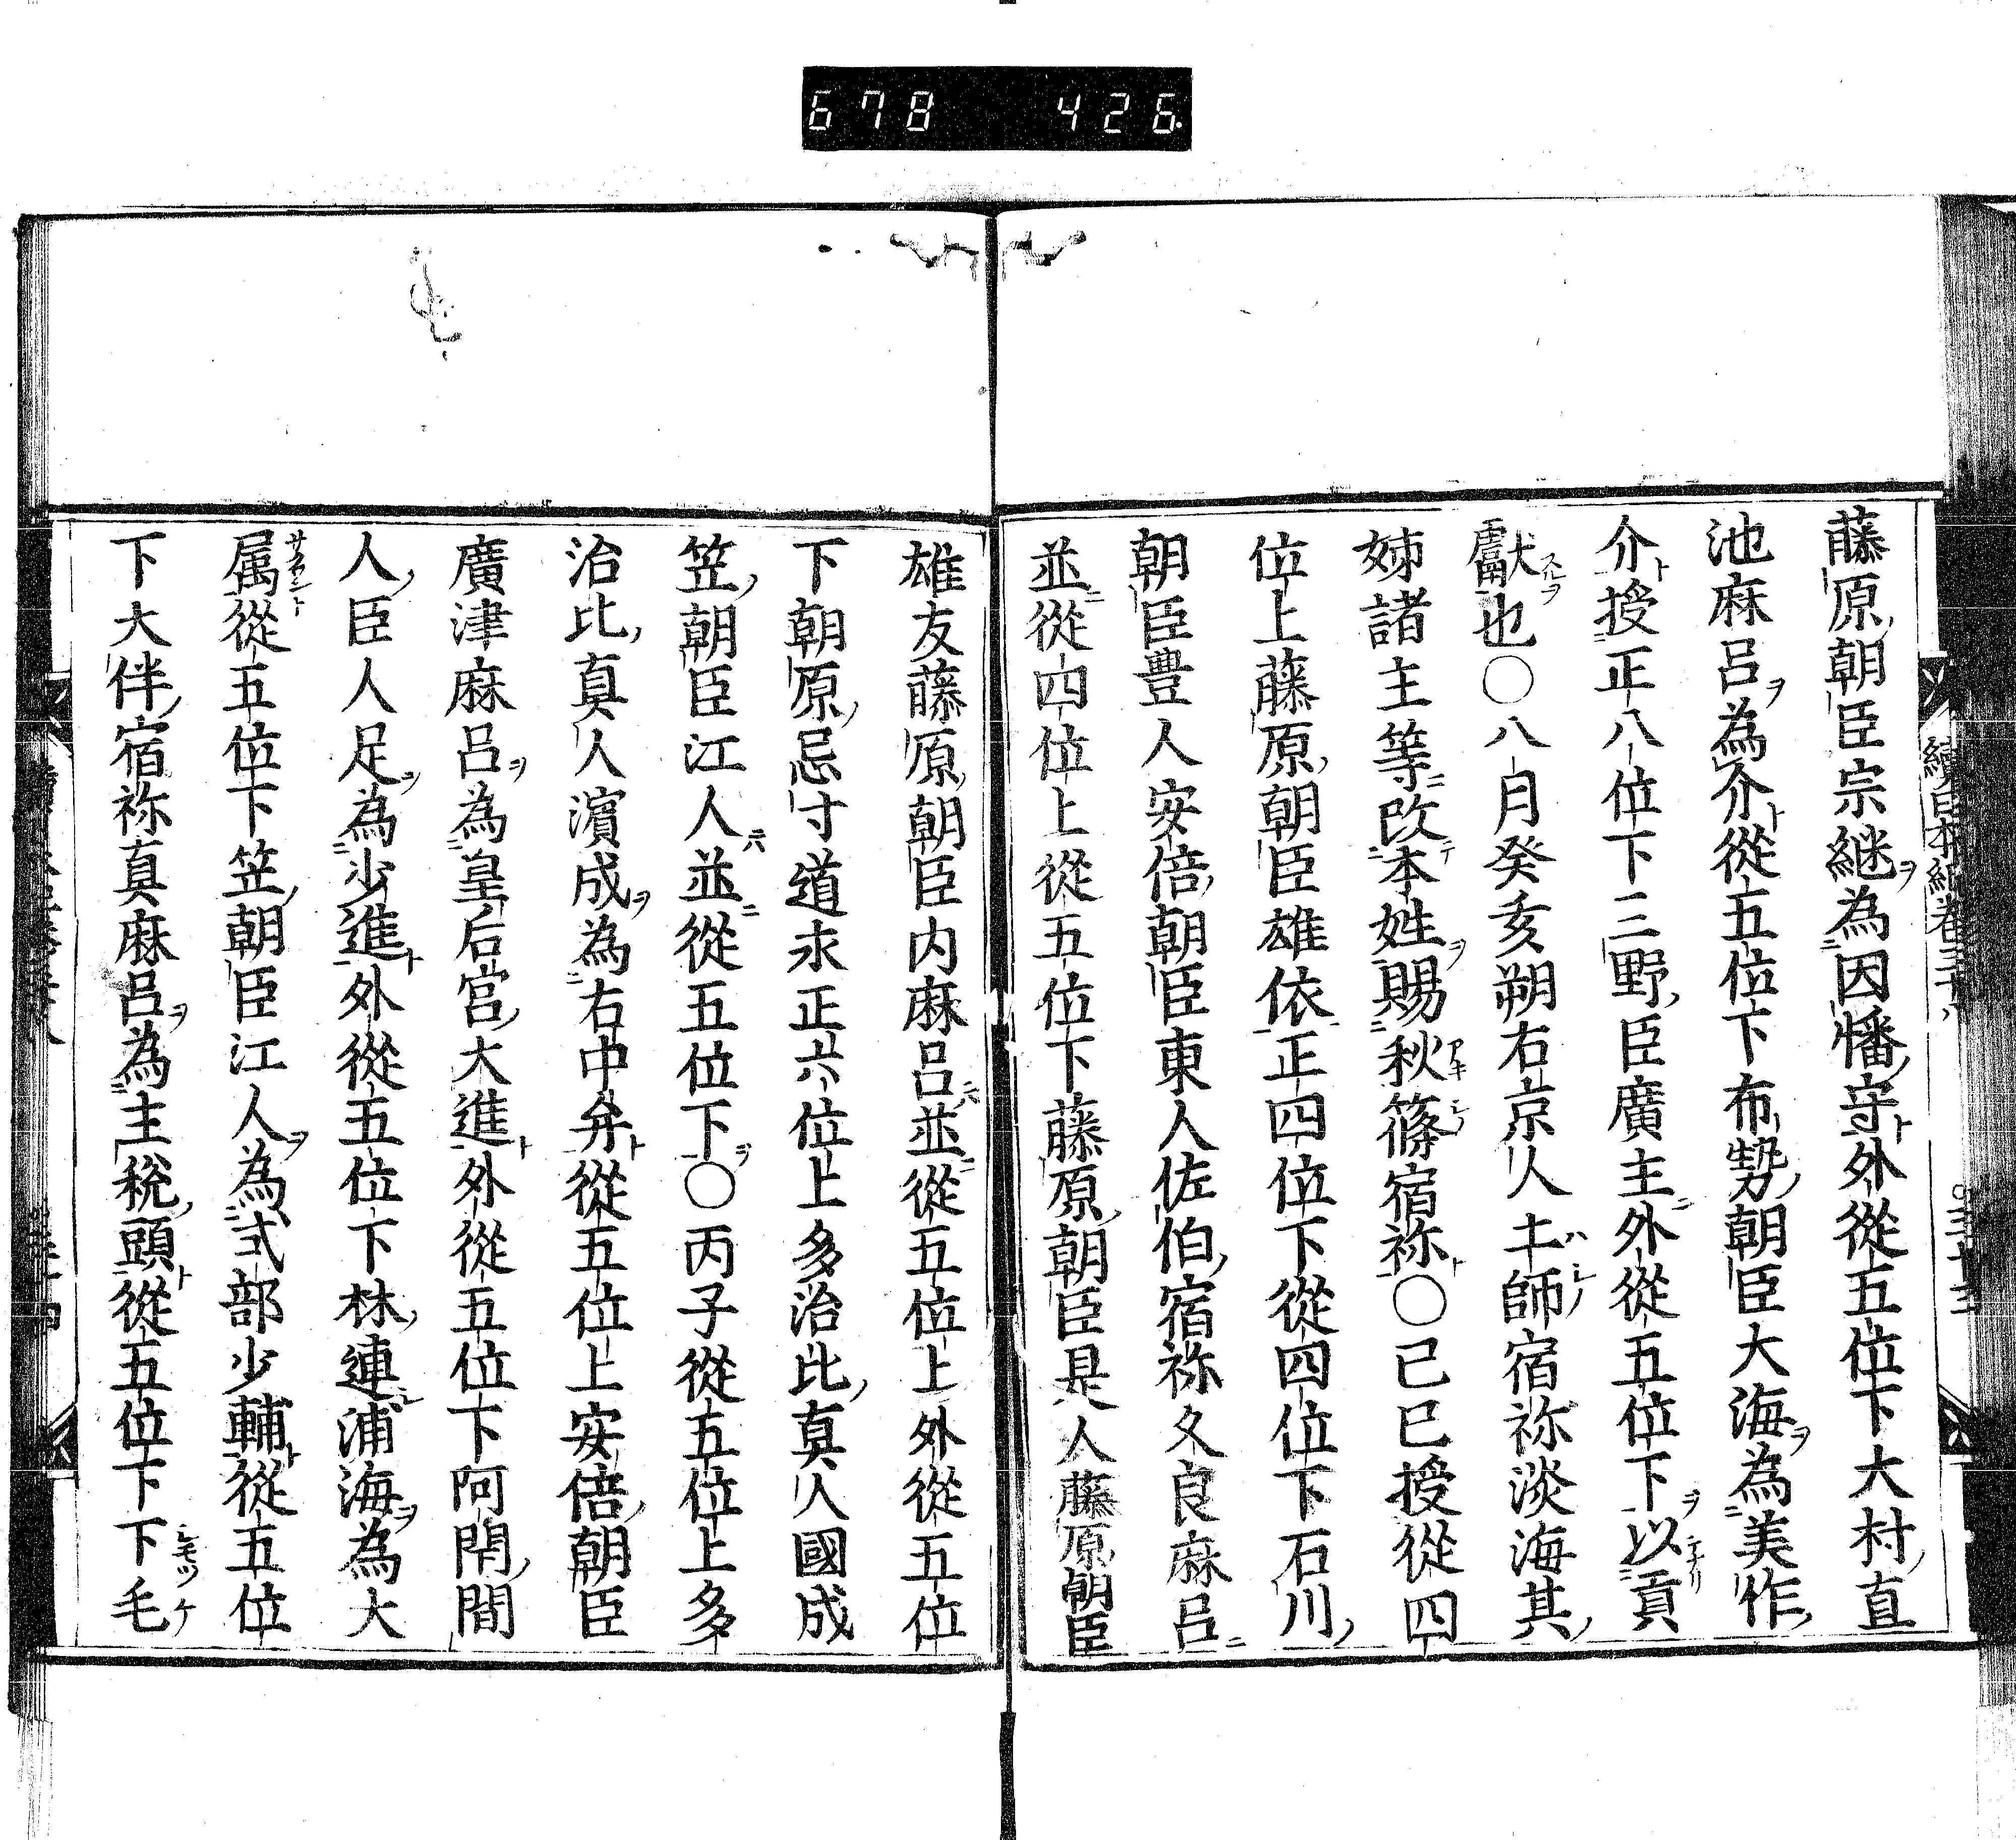 678 426
藤原朝臣宗継為因幡守外從五位下大村直
池麻呂為介從五位下布勢朝臣大海為美作
介授正八位下三野臣廣主外從五位下以貢
獻也○八月癸亥朔右京人土師宿祢淡海其
姉諸主等改本姓賜秋篠宿祢○己巳授從四
位上藤原朝臣雄依正四位下從四位下石川
朝臣豊人安倍朝臣東人佐伯宿祢久良麻呂
並從四位上從五位下藤原朝臣是人藤原朝臣
雄友藤原朝臣内麻呂並從五位上外從五位
下朝原忌寸道永正六位上多治比真人國成
笠朝臣江人並從五位下○丙子從五位上多
治比真人濵成為右中弁從五位上安倍朝臣
廣津麻呂為皇后宮大進外從五位下阿閇間
人臣人足為少進外從五位下林連浦海為大
属從五位下笠朝臣江人為式部少輔從五位
下大伴宿祢真麻呂為主税頭從五位下下毛
續日本紀巻三十八